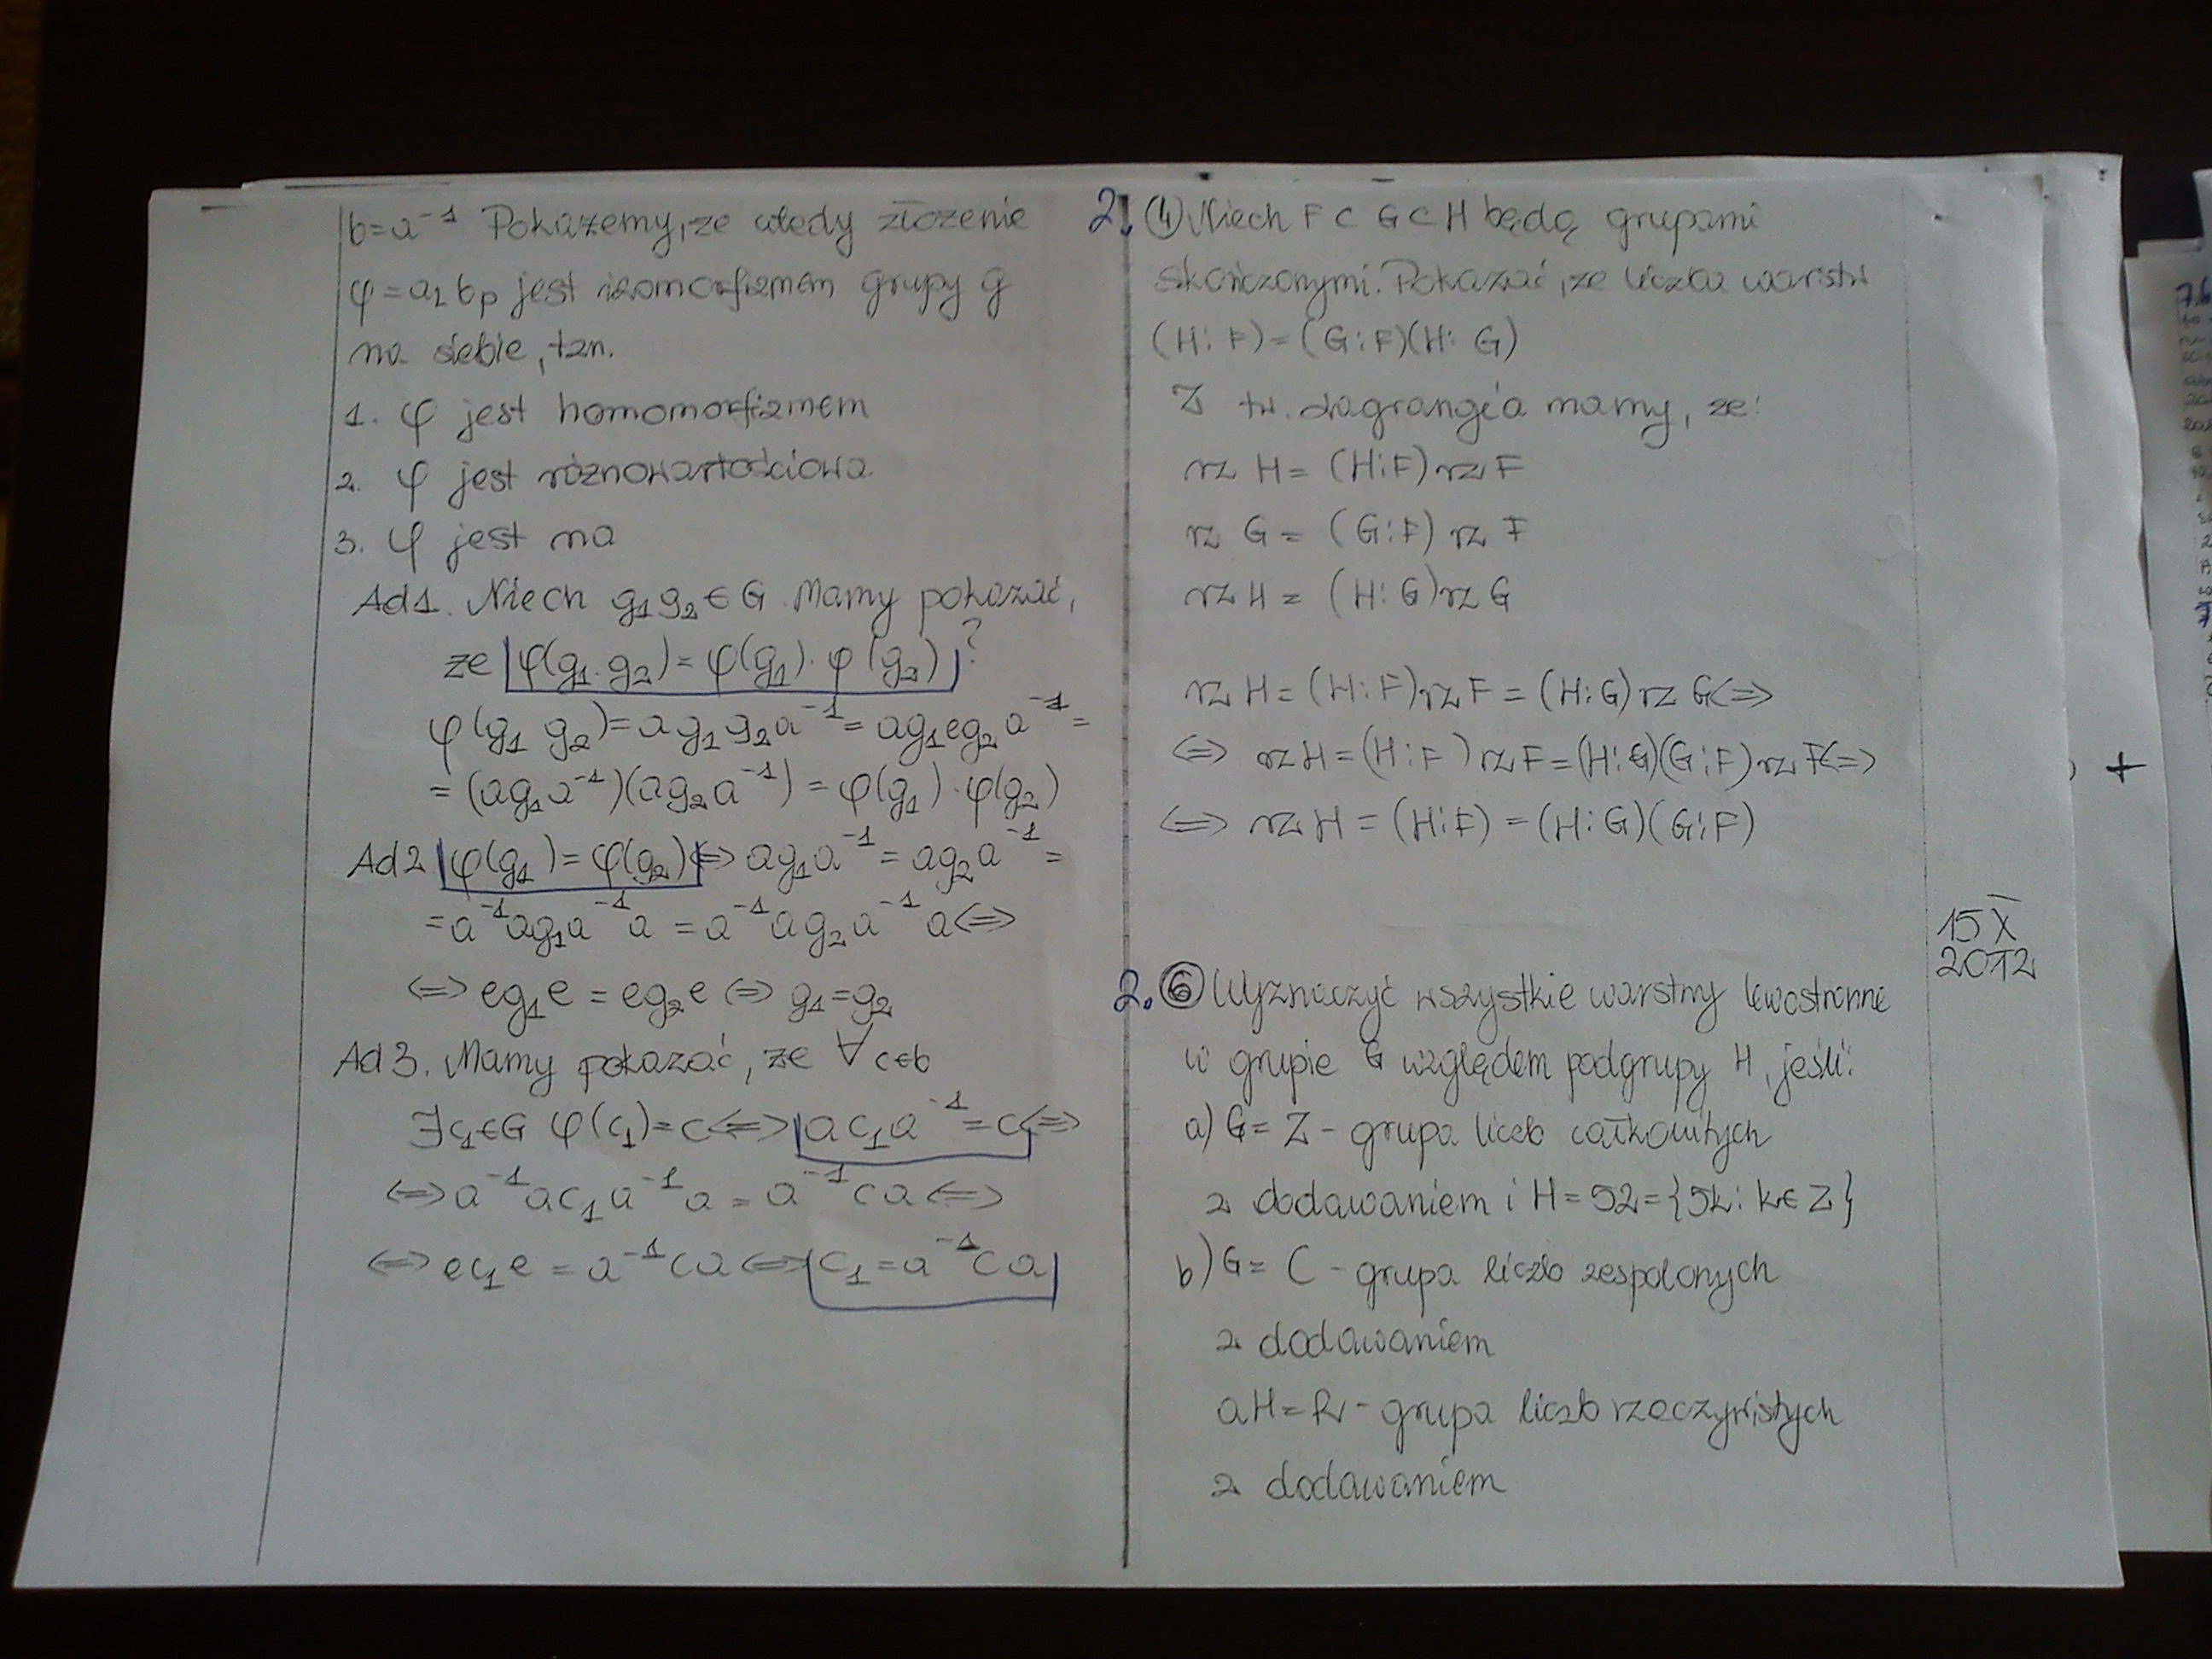 b=a⁻¹ Pokażemy, że wtedy złożenie
φ=a₂ bₚ jest izomorfizmem grupy g
na siebie, tzn.
1. φ jest homomorfizmem
2. φ jest różnowartościowa.
3. φ jest na
Ad1. Niech g₁g₂∈G. Mamy pokazać,
że φ(g₁·g₂)=φ(g₁)·φ(g₂)?
φ(g₁ g₂)=ag₁g₂a⁻¹=ag₁eg₂a⁻¹=
=(ag₁a⁻¹)(ag₂a⁻¹)=φ(g₁)·φ(g₂)
Ad2. φ(g₁)=φ(g₂)⇔ag₁a⁻¹=ag₂a⁻¹=
=a⁻¹ag₁a⁻¹a=a⁻¹ag₂a⁻¹a⇔
⇔eg₁e=eg₂e⇔g₁=g₂
Ad3. Mamy pokazać, że ∀c∈b
∃c₁∈G φ(c₁)=c⇔ac₁a⁻¹=c⇔
⇔a⁻¹ac₁a⁻¹a=a⁻¹ca⇔
⇔ec₁e=a⁻¹ca⇔c₁=a⁻¹ca
2. (4) Niech F⊂G⊂H będą grupami
skończonymi. Pokazać, że liczba warstw
(H:F)=(G:F)(H:G)
Z tw. Lagrange'a mamy, że:
rz H=(H:F)rz F
rz G=(G:F) rz F
rz H=(H:G)rz G
rz H=(H:F)rz F=(H:G)rz G⇔
⇔ rz H=(H:F)rz F=(H:G)(G:F)rz F⇔
⇔ rz H=(H:F)=(H:G)(G:F)
+
15 X
2012
2. (6) Wyznaczyć wszystkie warstwy lewostronne
w grupie G względem podgrupy H, jeśli:
a) G=Z - grupa liczb całkowitych
z dodawaniem i H=5Z={5k: k∈Z}
b) G=C - grupa liczb zespolonych
z dodawaniem
a H=R - grupa liczb rzeczywistych
z dodawaniem